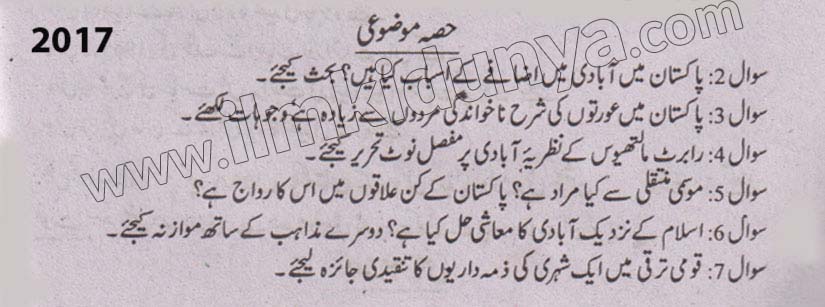 2017
حصہ موضوعی
سوال 2: پاکستان میں آبادی میں اضافے کے اسباب کیا ہیں؟ بحث کیجئے۔
سوال 3: پاکستان میں عورتوں کی شرح ناخواندگی مردوں سے زیادہ ہے وجوہات لکھئے۔
سوال 4: رابرٹ مالتھیوس کے نظریۂ آبادی پر مفصل نوٹ تحریر کیجئے۔
سوال 5: موسمی منتقلی سے کیا مراد ہے؟ پاکستان کے کن علاقوں میں اس کا رواج ہے؟
سوال 6: اسلام کے نزدیک آبادی کا معاشی حل کیا ہے؟ دوسرے مذاہب کے ساتھ موازنہ کیجئے۔
سوال 7: قومی ترقی میں ایک شہری کی ذمہ داریوں کا تنقیدی جائزہ لیجئے۔
www.ilmkidunya.com